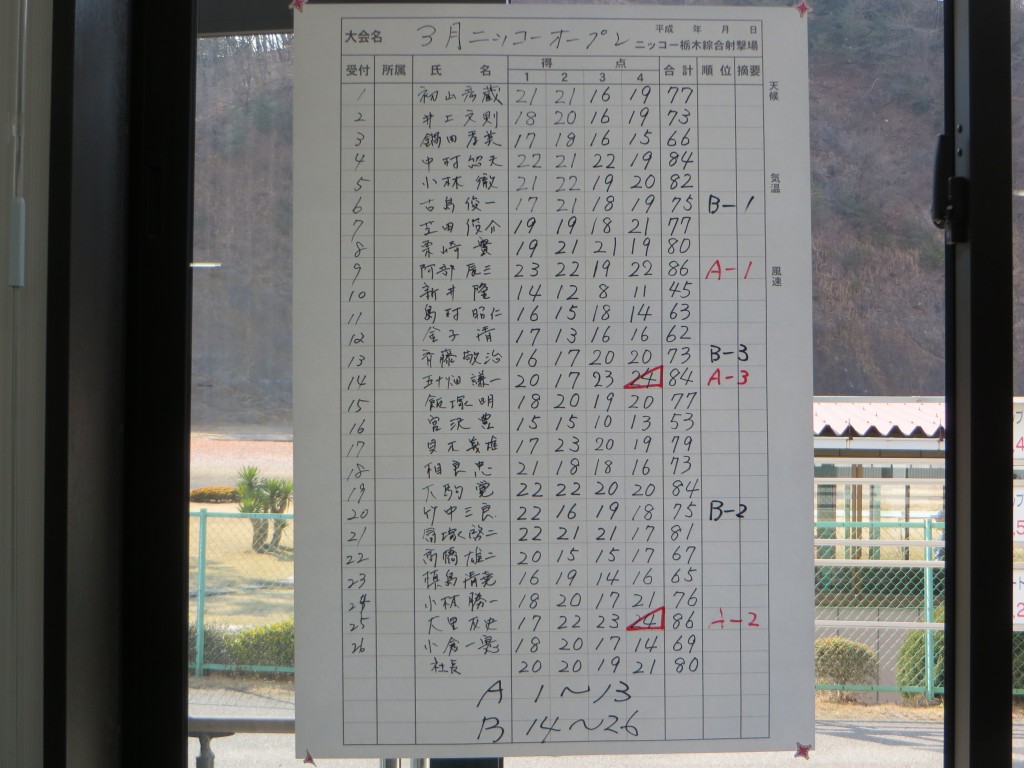 大会名 3月ニッコーオープン 平成 年 月 日
ニッコー栃木綜合射撃場
受付 所属 氏 名 得 点 合計 順位 摘要
1 2 3 4
天候
気温
風速
1 初山彦蔵 21 21 16 19 77
2 井上文則 18 20 16 19 73
3 鍋田孝英 17 18 16 15 66
4 中村 22 21 22 19 84
5 小林 徹 21 22 19 20 82
6 古島俊一 17 21 18 19 75 B-1
7 俊介 19 19 18 21 77
8 19 21 21 19 80
9 阿部辰三 23 22 19 22 86 A-1
10 新井 隆 14 12 8 11 45
11 島村昭仁 16 15 18 14 63
12 金子 清 17 13 16 16 62
13 斉藤敬治 16 17 20 20 73 B-3
14 五十畑謙一 20 17 23 24 84 A-3
15 飯塚 明 18 20 19 20 77
16 宮沢 豊 15 15 10 13 53
17 17 23 20 19 79
18 相良 忠 21 18 18 16 73
19 大駒 寛 22 22 20 20 84
20 竹中三良 22 16 19 18 75 B-2
21 22 21 21 17 81
22 高橋雄二 20 15 15 17 67
23 16 19 14 16 65
24 小林勝一 18 20 17 21 76
25 17 22 23 24 86 -2
26 小倉一 18 20 17 14 69
社長 20 20 19 21 80
A 1～13
B 14～26